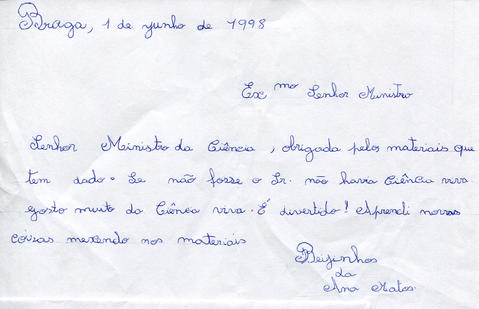 Braga, 1 de junho de 1998
Ex mo Senhor Ministro
Senhor Ministro da Ciência, obrigada pelos materiais que
tem dado. Se não fosse o Sr. não havia Ciência viva.
gosto muito da Ciênca viva. É divertido! Aprendi novas
coizas mexendo nos materiais
Beijinhos
da
Ana Matos.